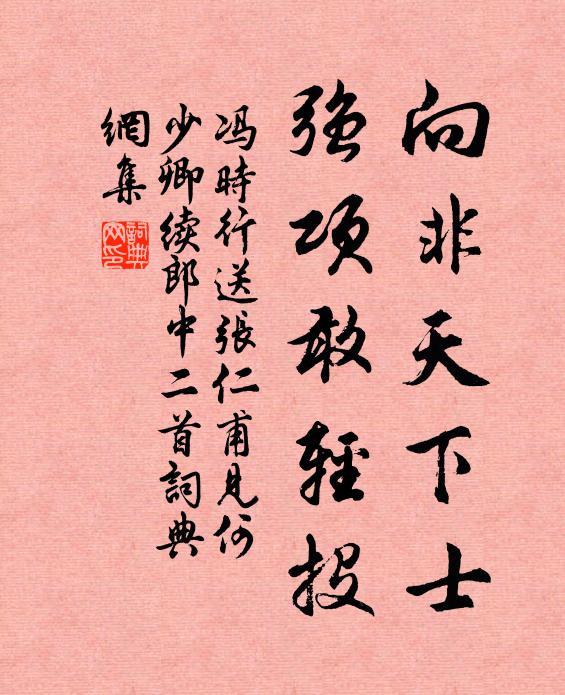 向非天下士
强项敢輕投
冯時行送張仁甫見何
少卿续郎中二首詞典
網集
詞典
网印